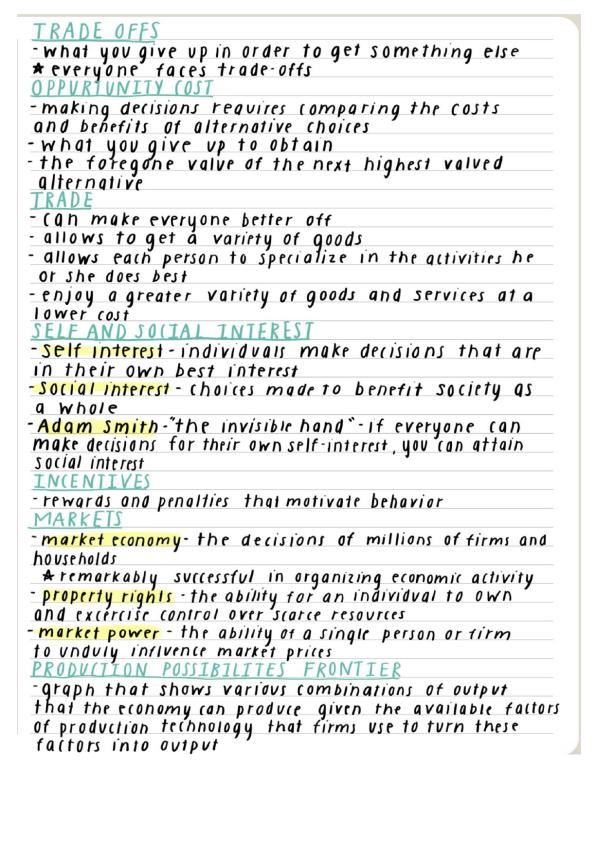 TRADE OFFS
-what you give up in order to get something else
★ everyone faces trade-offs
OPPURTUNITY COST
-making decisions requires comparing the costs
and benefits of alternative choices
-what you give up to obtain
-the foregone value of the next highest valued
alternative
TRADE
-can make everyone better off
-allows to get a variety of goods
-allows each person to specialize in the activities he
or she does best
-enjoy a greater variety of goods and services at a
lower cost
SELF AND SOCIAL INTEREST
-self interest-individuals make decisions that are
in their own best interest
-social interest-choices made to benefit society as
a whole
-Adam Smith-"the invisible hand"-if everyone can
make decisions for their own self-interest, you can attain
social interest
INCENTIVES
-rewards and penalties that motivate behavior
MARKETS
-market economy-the decisions of millions of firms and
households
★remarkably successful in organizing economic activity
-property rights-the ability for an individual to own
and excercise control over scarce resources
-market power-the ability of a single person or firm
to unduly influence market prices
PRODUCTION POSSIBILITES FRONTIER
-graph that shows various combinations of output
that the economy can produce given the available factors
of production technology that firms use to turn these
factors into output